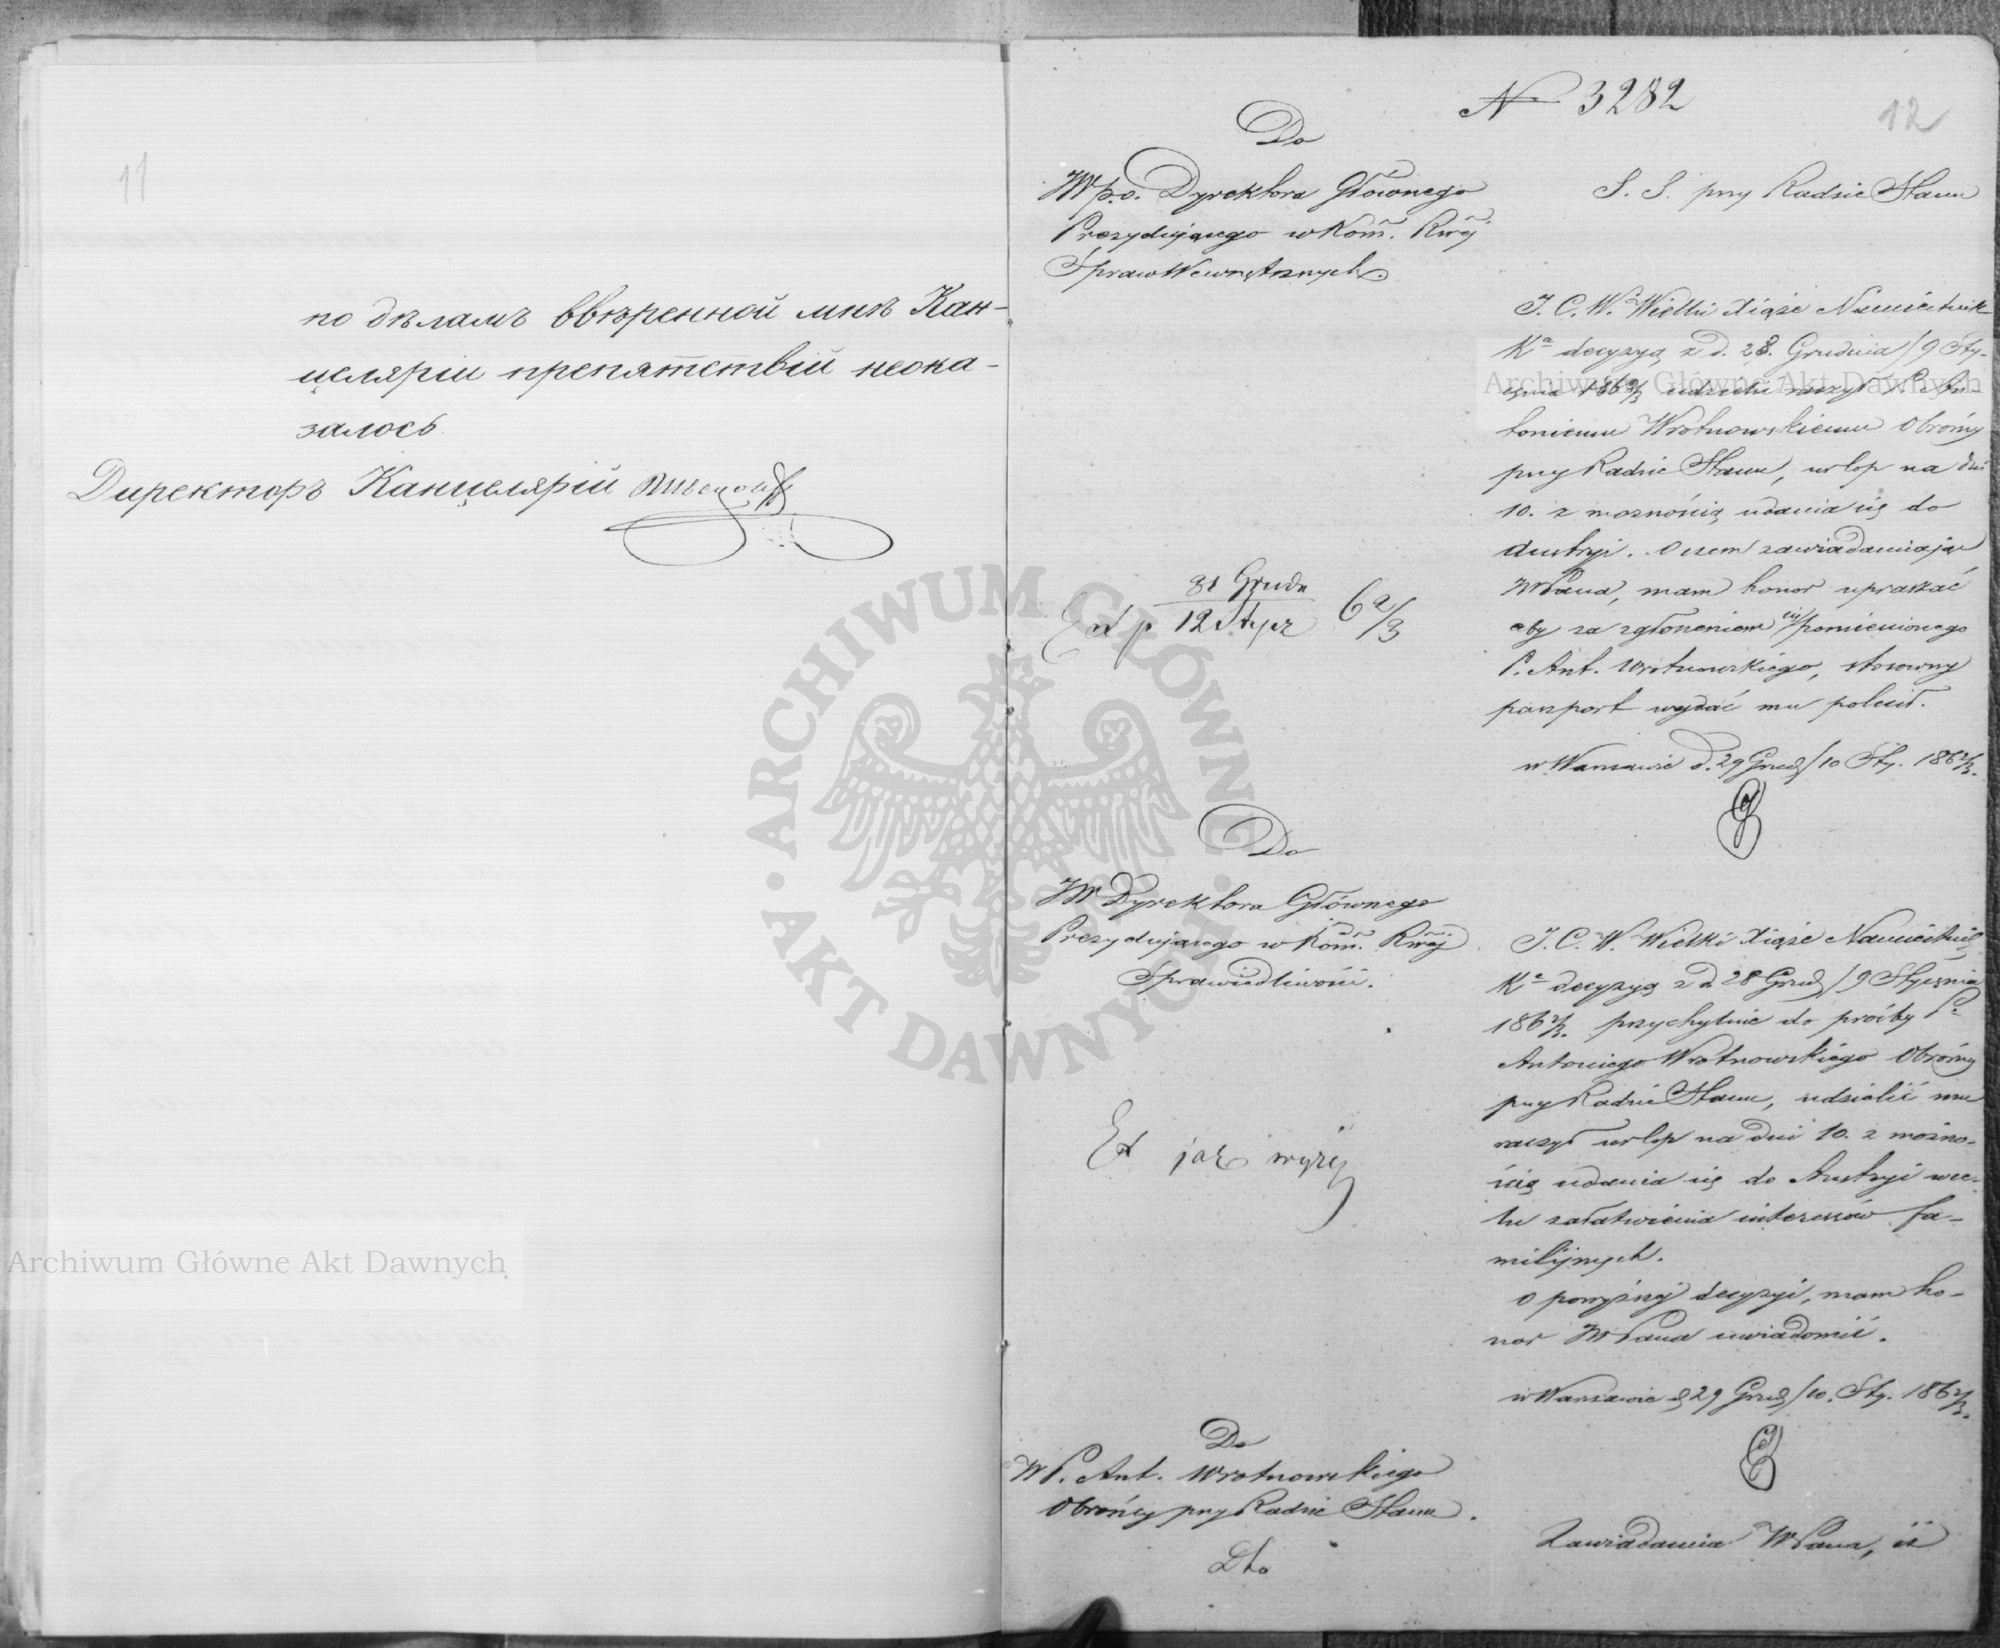 11
по дѣламъ ввѣренной мнѣ Кан-
целяріи препятствій неока-
залось
Директоръ Канцеляріи
Archiwum Główne Akt Dawnych
№ 3282
12
Do
JW p.o. Dyrektora Głównego
Prezydującego w Kom. Rząj
Spraw Wewnętrznych.
S. S. przy Radzie Stanu
J. C. W. Wielki Xiąże Namiestnik
Kª decyzyą z d. 28. Grudnia / 9 Sty-
cznia 186 2/3 udzielić raczył P. An-
toniemu Wrotnowskiemu Obrońcy
przy Radzie Stanu, urlop na dni
10. z możnością udania się do
Austryi. O czem zawiadamiając
JWPana, mam honor upraszać
aby za zgłoszeniem się pomienionego
P. Ant. Wrotnowskiego, stosowny
paszport wydać mu polecił.
w Warszawie d. 29 Grud / 10 Sty. 186 2/3.
Ex p 31 Grudn / 12 Stycz 6 2/3
Do
JW Dyrektora Głównego
Prezydującego w Kom. Rząj
Sprawiedliwości.
J. C. W. Wielki Xiąże Namiestnik
Kª decyzyą z d 28 Grud / 9 Stycznia
186 2/3. przychylnie do prośby P.
Antoniego Wrotnowskiego Obrońcy
przy Radzie Stanu, udzielić mu
raczył urlop na dni 10. z możno-
ścią udania się do Austryi w ce-
lu załatwienia interessów fa-
milijnych.
O powyższej decyzyi, mam ho-
nor JWPana uwiadomić.
w Warszawie d 29 Grud / 10. Sty. 186 2/3.
Ex jak wyżej
Do
W P. Ant. Wrotnowskiego
Obrońcy przy Radzie Stanu.
Dto
Zawiadamia WPana, iż
Archiwum Główne Akt Dawnych
ARCHIWUM GŁÓWNE · AKT DAWNYCH ·